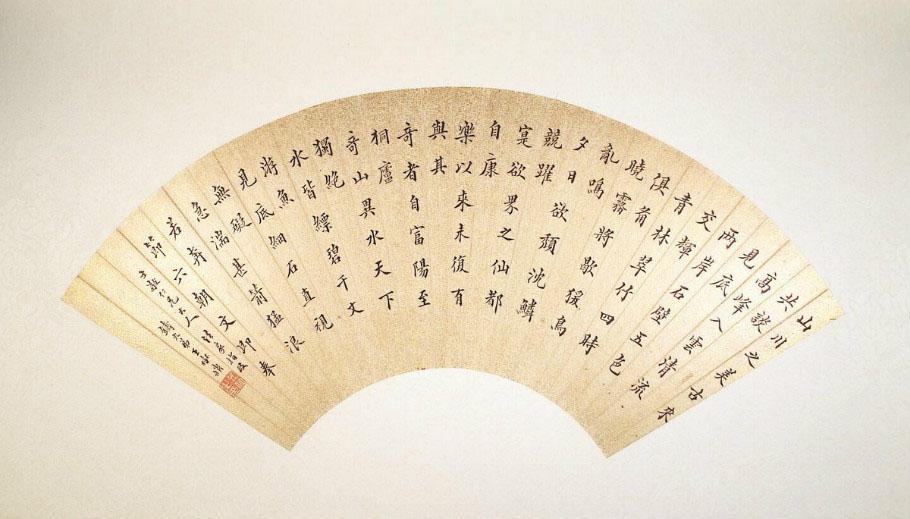 山川之美古來
共談
高峰入雲清流
見底
兩岸石壁五色
交輝
青林翠竹四時
俱備
曉霧將歇猨鳥
亂鳴
夕日欲頹沈鱗
競躍
寔欲界之仙都
自康
樂以來未復有
與其
奇者自富陽至
桐廬
奇山異水天下
獨絕
水皆縹碧千丈
游魚
見底細石直視
無礙
急湍甚箭猛浪
若奔
節六朝文即奉
仁兄大人